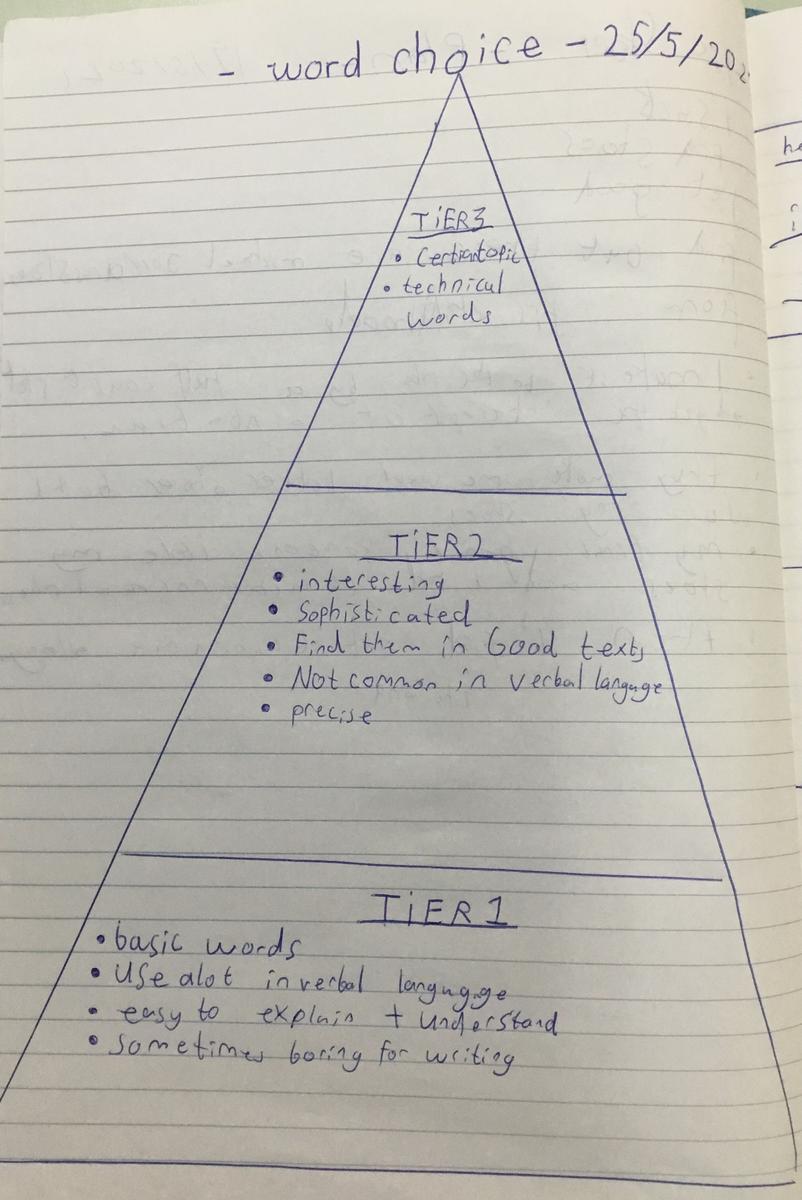 - word choice - 25/5/202
TiER3
• Certiantopic
• technical
words
TiER2
• interesting
• Sophisticated
• Find them in Good texts
• Not common in verbal languge
• precise
TiER1
• basic words
• Use alot in verbal langugage
• easy to explain + understand
• sometimes boring for writing